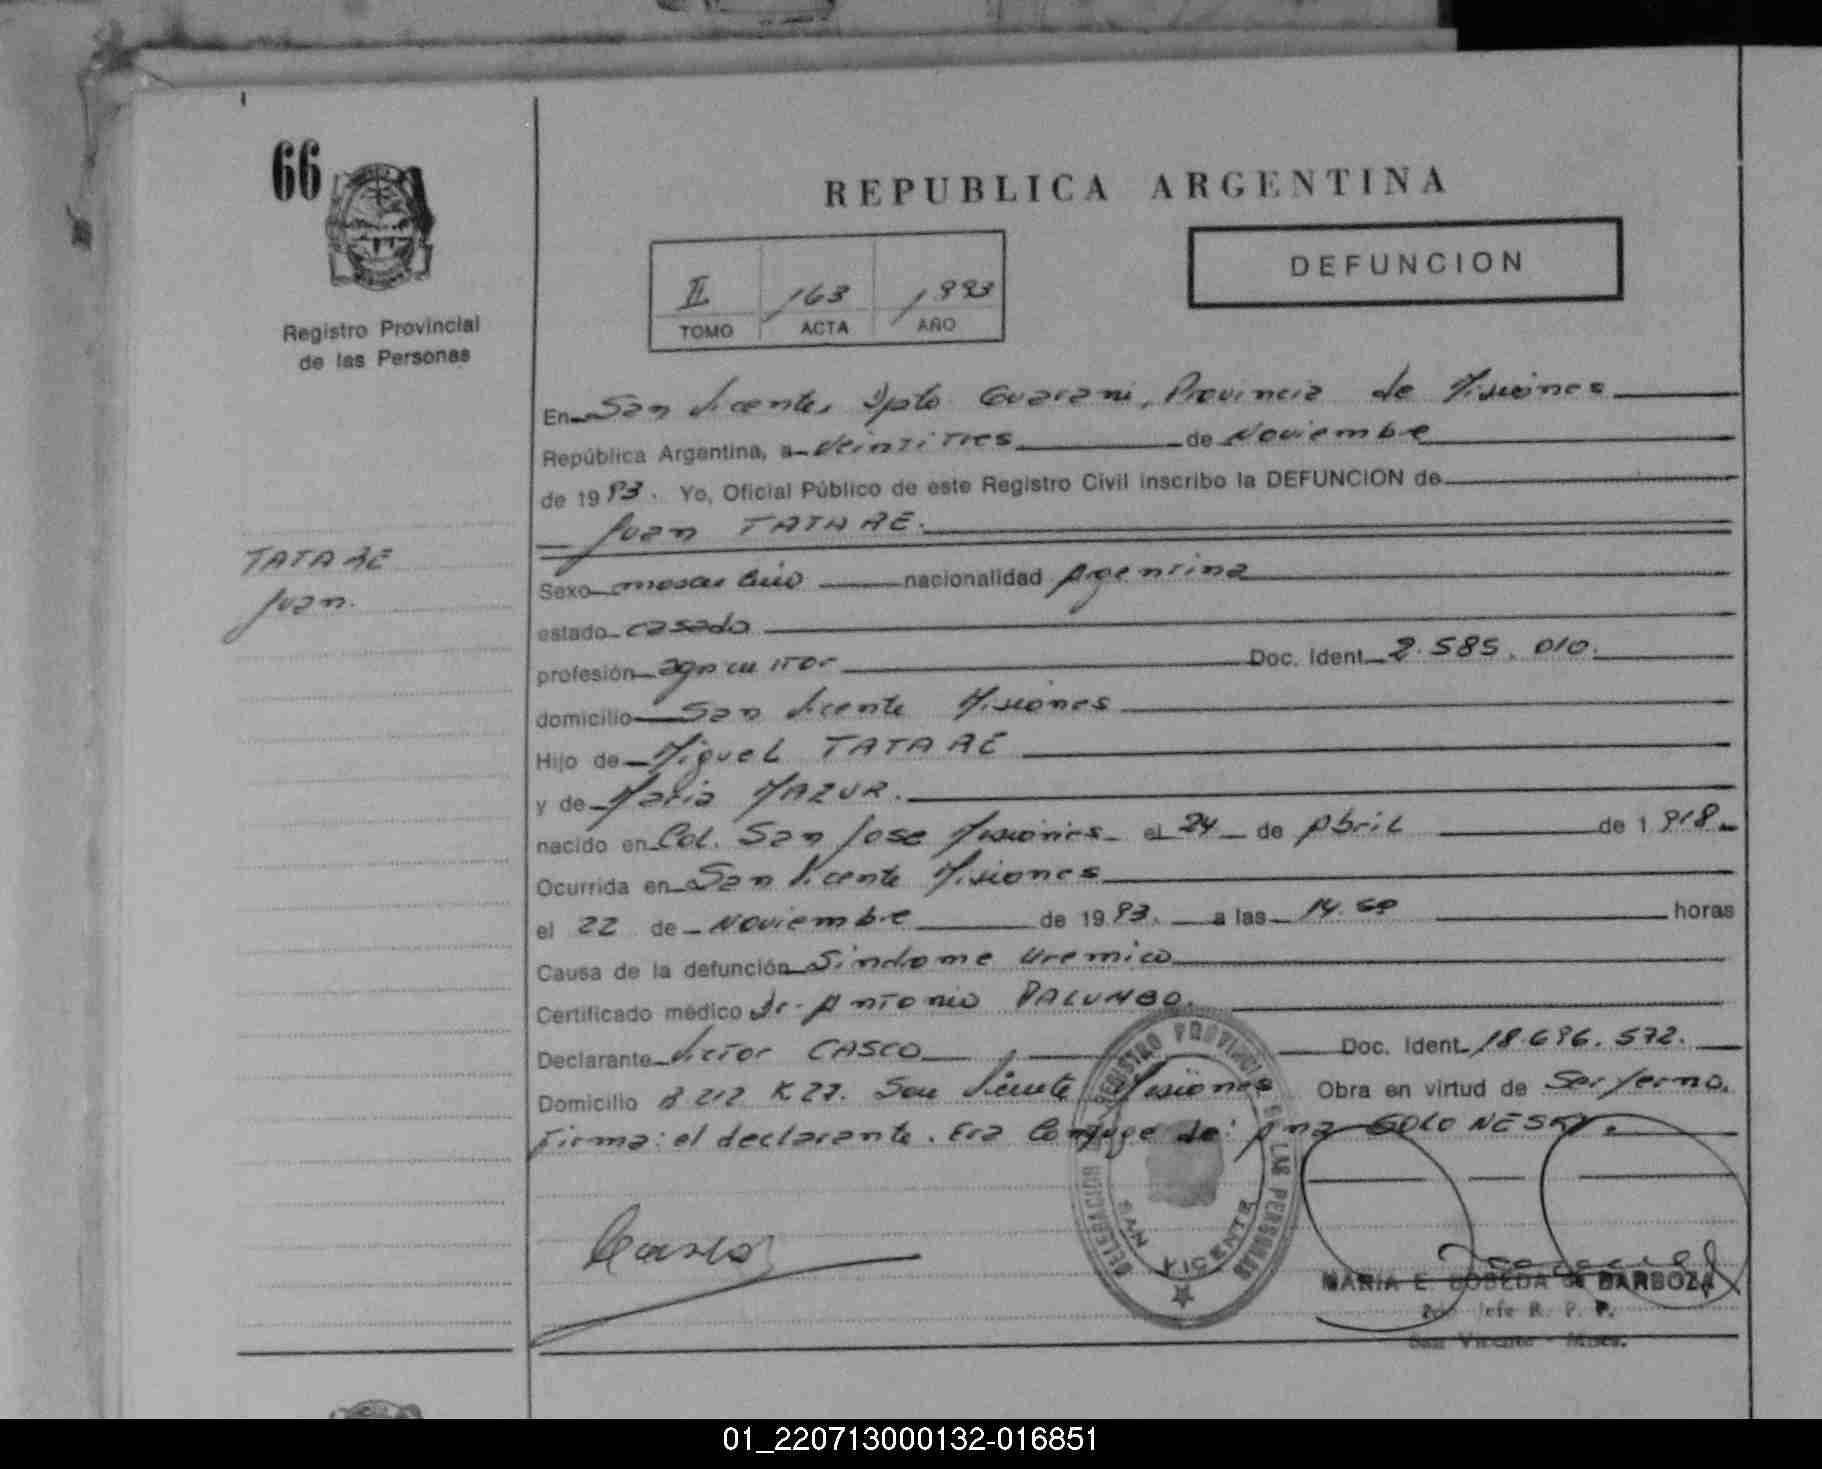 66
REPUBLICA ARGENTINA
DEFUNCION
II 163 1993
TOMO ACTA AÑO
Registro Provincial
de las Personas
En San Vicente, Dpto Guarani, Provincia de Misiones
República Argentina, a veintitres de Noviembre
de 1993. Yo, Oficial Público de este Registro Civil inscribo la DEFUNCION de
Juan TATARE.
TATARE
Juan.
Sexo masculino nacionalidad Argentina
estado casado
profesión agricultor Doc. Ident. 2.585.010.
domicilio San Vicente Misiones
Hijo de Miguel TATARE
y de Maria MAZUR.
nacido en Col. San Jose Misiones el 24 de Abril de 1918
Ocurrida en San Vicente Misiones
el 22 de Noviembre de 1993. a las 14. horas
Causa de la defunción Sindrome Uremico
Certificado médico Dr. Antonio PALUMBO.
Declarante Victor CASCO Doc. Ident. 18.696.572.
Domicilio B 212 K 27. San Vicente Misiones Obra en virtud de Ser Yerno.
Firma: el declarante. Era Conyuge de: Ana GOLONESKY.
DELEGACION REGISTRO PROVINCIAL DE LAS PERSONAS
SAN VICENTE
Casco
MARIA E. BOBEDA de BARBOZA
2do Jefe R. P. P.
San Vicente - Mnes.
01_220713000132-016851